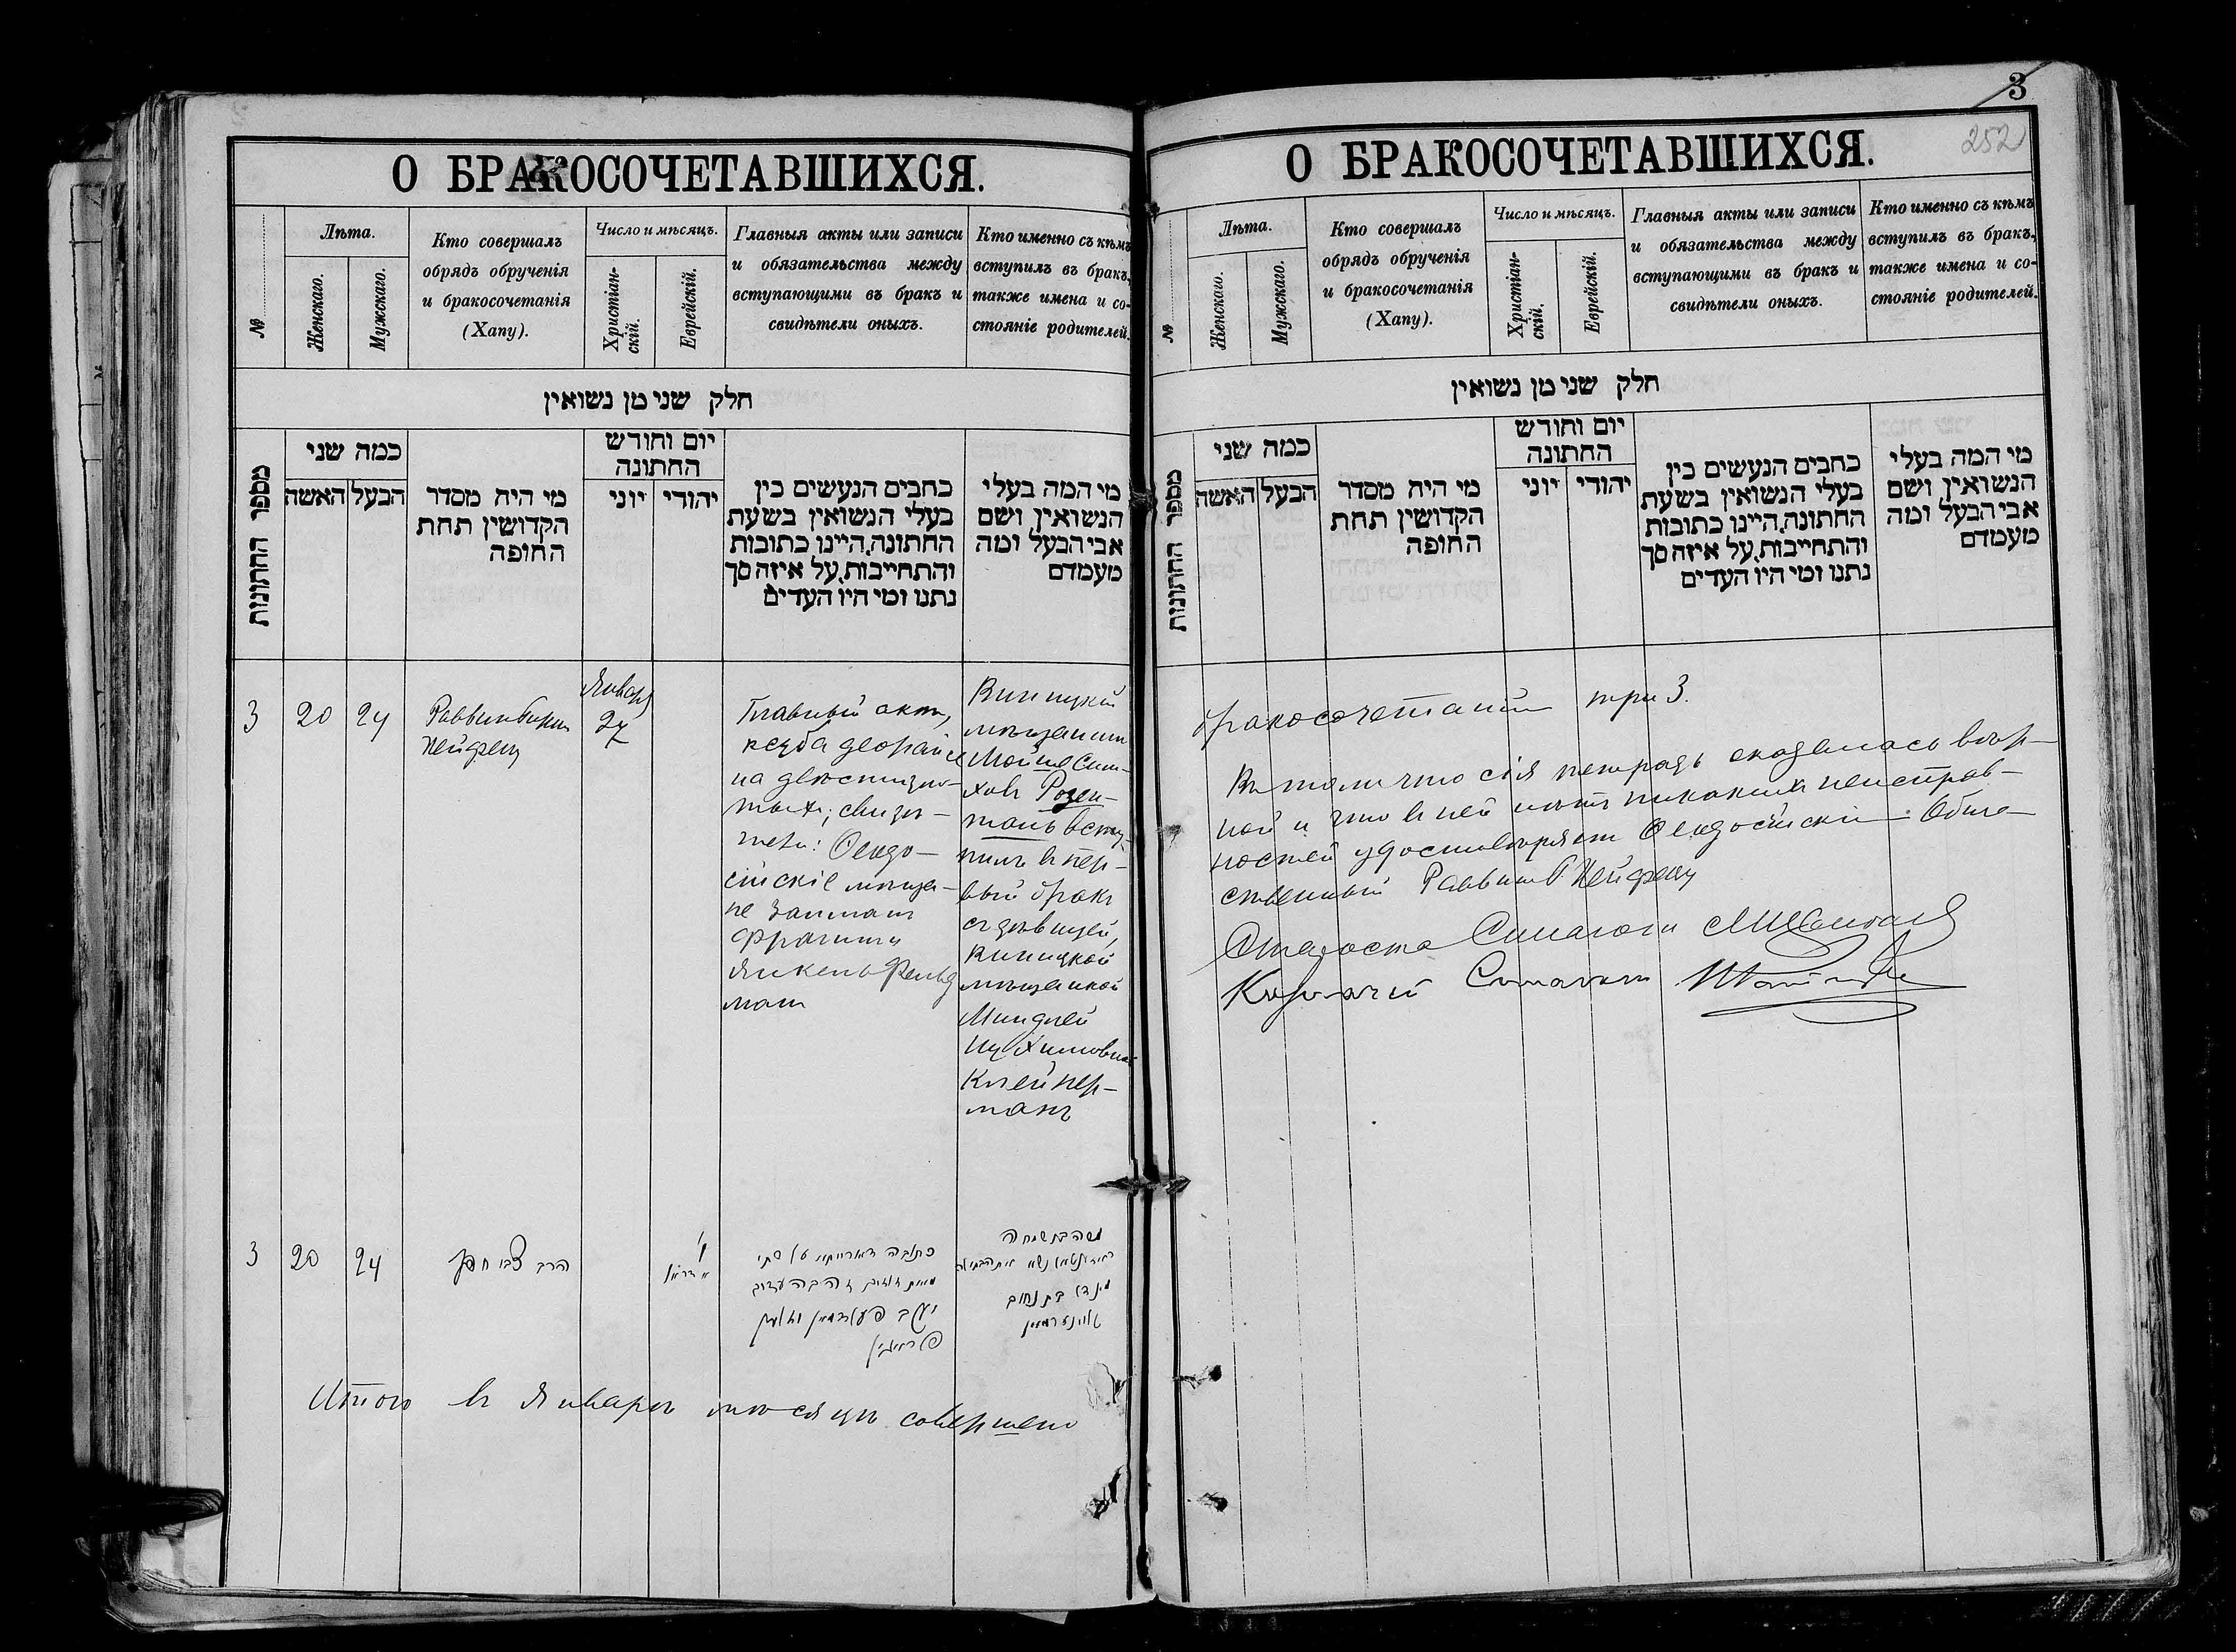 О БРАКОСОЧЕТАВШИХСЯ.
№
Лѣта.
Женскаго.
Мужскаго.
Кто совершалъ
обрядъ обрученія
и бракосочетанія
(Хапу).
Число и мѣсяцъ.
Христіан-
скій.
Еврейскій.
Главныя акты или записи
и обязательства между
вступающими въ бракъ и
свидѣтели оныхъ.
Кто именно съ кѣмъ
вступилъ въ бракъ,
также имена и со-
стояніе родителей.
חלק שני מן נשואין
מספר החתונות
כמה שני
האשה
הבעל
מי היה מסדר
הקדושין תחת
החופה
יום וחודש
החתונה
יוני
יהודי
כתבים הנעשים בין
בעלי הנשואין בשעת
החתונה, היינו כתובות
והתחייבות, על איזה סך
נתנו ומי היו העדים
מי המה בעלי
הנשואין ושם
אבי הבעל ומה
מעמדם
3
20
24
Раввинъ
Нейфец
Январь
27
Главный актъ,
на двѣсти зло-
тыхъ; свидѣ-
тели: Ѳеодо-
сійскіе мѣща-
не Залман
Янкель Фельд
ман
мѣщанинъ
Мойше Сим-
ховъ Розен-
таль всту-
пилъ въ пер-
вый бракъ
съ дѣвицей,
мѣщанкой
Миндлей
Клейнер-
манъ
3
20
24
הרב צבי חפץ
כתובה דאורייתא על שתי
יעקב פעלדמאן וזלמן
משה בן שמחה
מינדל בת נחום
Итого въ Январѣ мѣсяцѣ совершено
3
252
О БРАКОСОЧЕТАВШИХСЯ.
№
Лѣта.
Женскаго.
Мужскаго.
Кто совершалъ
обрядъ обрученія
и бракосочетанія
(Хапу).
Число и мѣсяцъ.
Христіан-
скій.
Еврейскій.
Главныя акты или записи
и обязательства между
вступающими въ бракъ и
свидѣтели оныхъ.
Кто именно съ кѣмъ
вступилъ въ бракъ,
также имена и со-
стояніе родителей.
חלק שני מן נשואין
מספר החתונות
כמה שני
האשה
הבעל
מי היה מסדר
הקדושין תחת
החופה
יום וחודש
החתונה
יוני
יהודי
כתבים הנעשים בין
בעלי הנשואין בשעת
החתונה, היינו כתובות
והתחייבות, על איזה סך
נתנו ומי היו העדים
מי המה בעלי
הנשואין ושם
אבי הבעל ומה
מעמדם
бракосочетаній три 3.
Въ томъ что сія тетрадь оказалась вѣр-
ной и что въ ней нѣтъ никакихъ неисправ-
ностей удостовѣряетъ Ѳеодосійскій Обще-
ственный Раввинъ Нейфец
Староста Синагоги
Казначей Синагоги